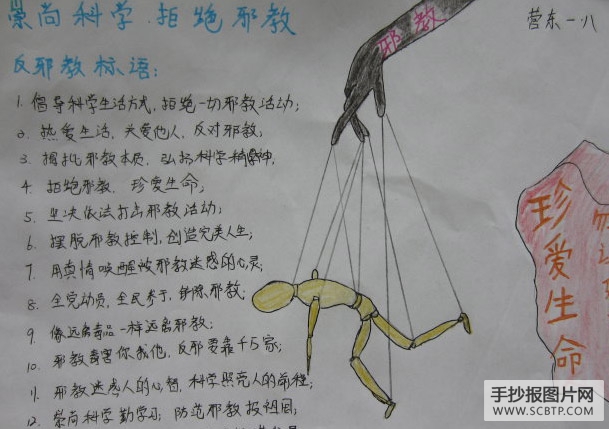 崇尚科学.拒绝邪教
反邪教标语:
1. 倡导科学生活方式,拒绝一切邪教活动;
2. 热爱生活,关爱他人,反对邪教;
3. 揭批邪教本质,弘扬科学精神.
4. 拒绝邪教,珍爱生命;
5. 坚决依法打击邪教活动;
6. 摆脱邪教控制,创造完美人生;
7. 用真情唤醒被邪教迷惑的心灵;
8. 全党动员,全民参与,铲除邪教;
9. 像远离毒品一样远离邪教;
10. 邪教毒害你我他,反邪要靠千万家;
11. 邪教迷惑人的心智,科学照亮人的前程;
12. 崇尚科学勤学习;防范邪教报祖国;
邪教
营东一.八
珍爱生命
手抄报图片网
WWW.SCBTP.COM